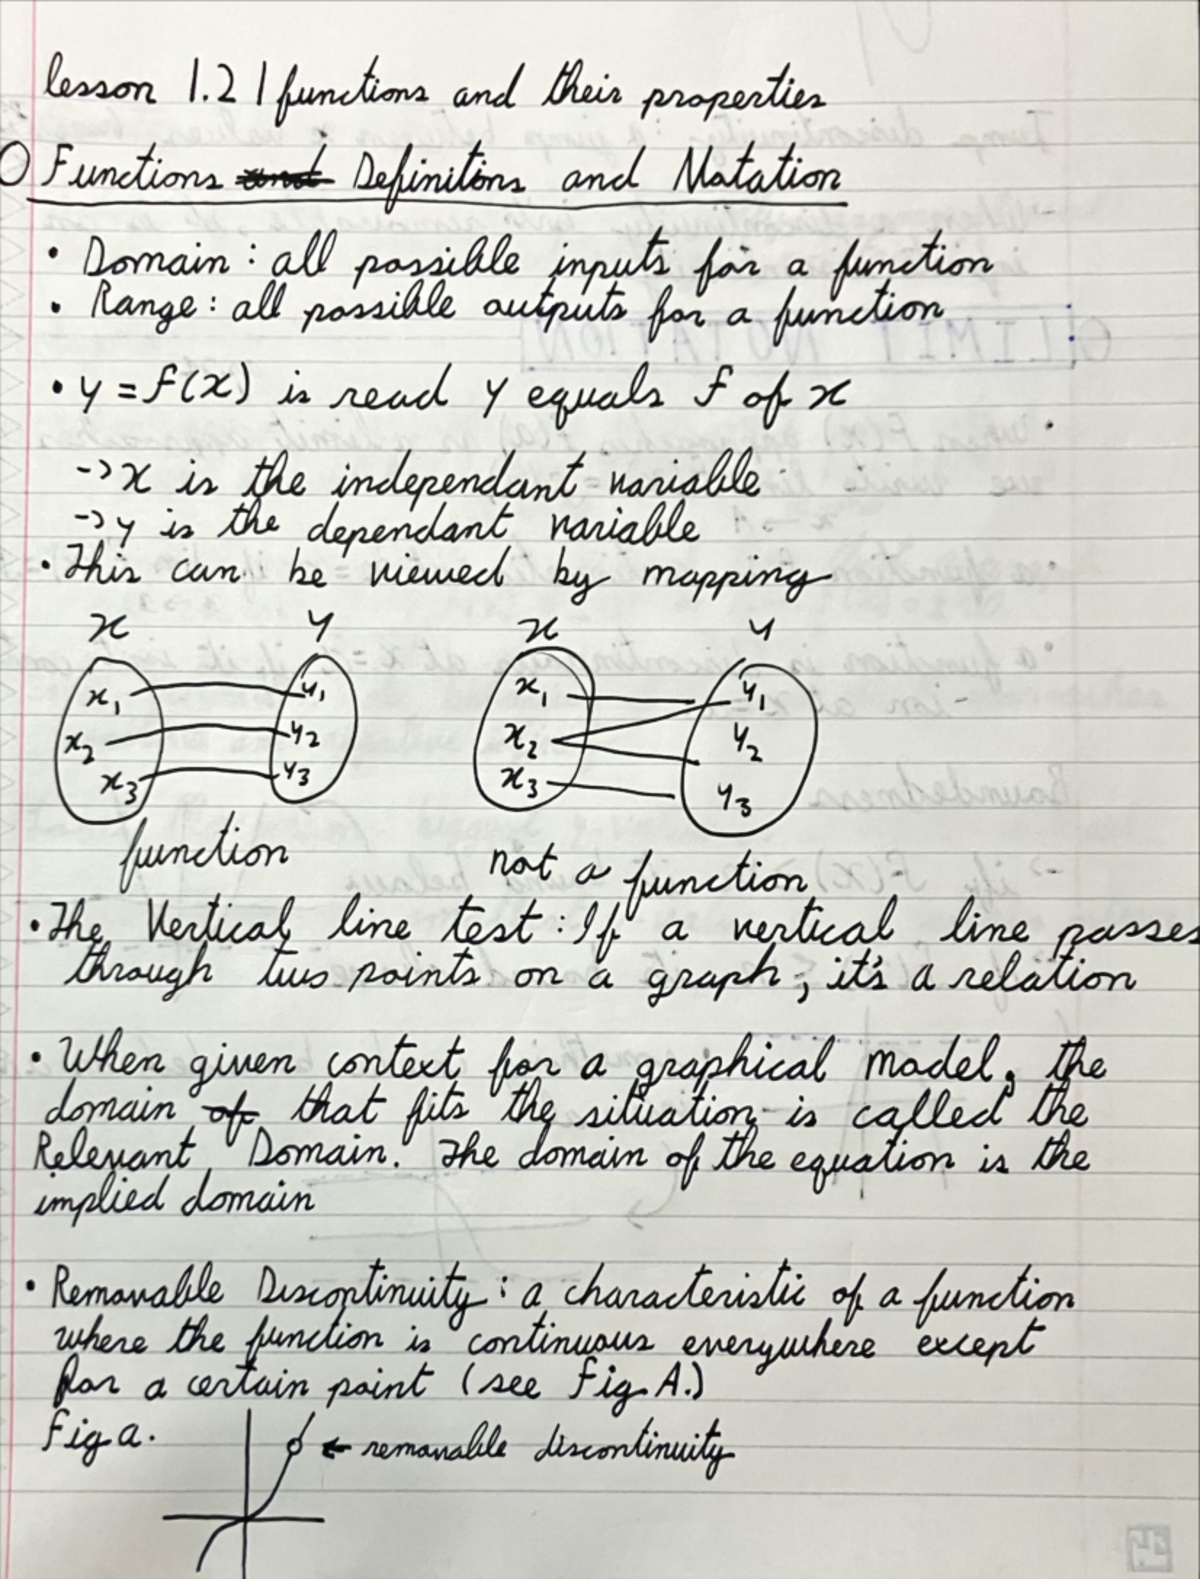 lesson 1.2 | functions and their properties
Functions and Definitions and Notation
• Domain : all possible inputs for a function
• Range : all possible outputs for a function
• y = f(x) is read y equals f of x
-> x is the independant variable
-> y is the dependant variable
• This can be viewed by mapping
x y x y
x₁ y₁ x₁ y₁
x₂ y₂ x₂ y₂
x₃ y₃ x₃ y₃
function not a function
• The Vertical line test : If a vertical line passes
through two points on a graph, it's a relation
• When given context for a graphical model, the
domain of that fits the situation is called the
Relevant Domain. The domain of the equation is the
implied domain
• Removable Discontinuity : a characteristic of a function
where the function is continuous everywhere except
for a certain point (see Fig. A.)
Fig a.
← removable discontinuity